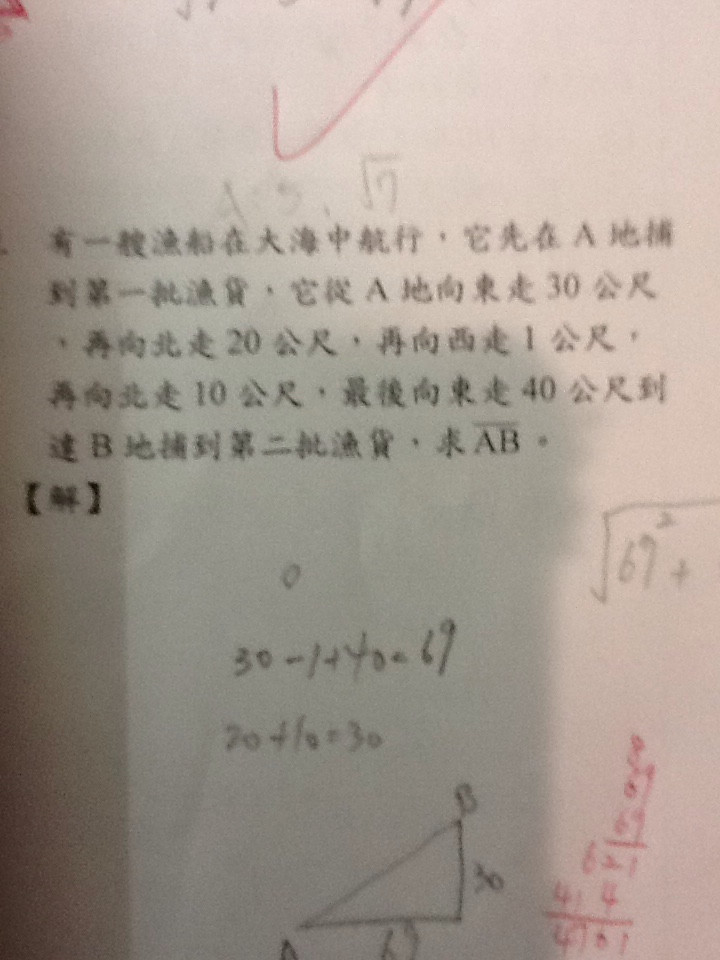 √7
有一艘漁船在大海中航行，它先在 A 地捕
到第一批漁貨，它從 A 地向東走 30 公尺
，再向北走 20 公尺，再向西走 1 公尺，
再向北走 10 公尺，最後向東走 40 公尺到
達 B 地捕到第二批漁貨，求 AB。
【解】
√69² +
30-1+40=69
20+10=30
B
30
A
69
69
69
621
414
4761